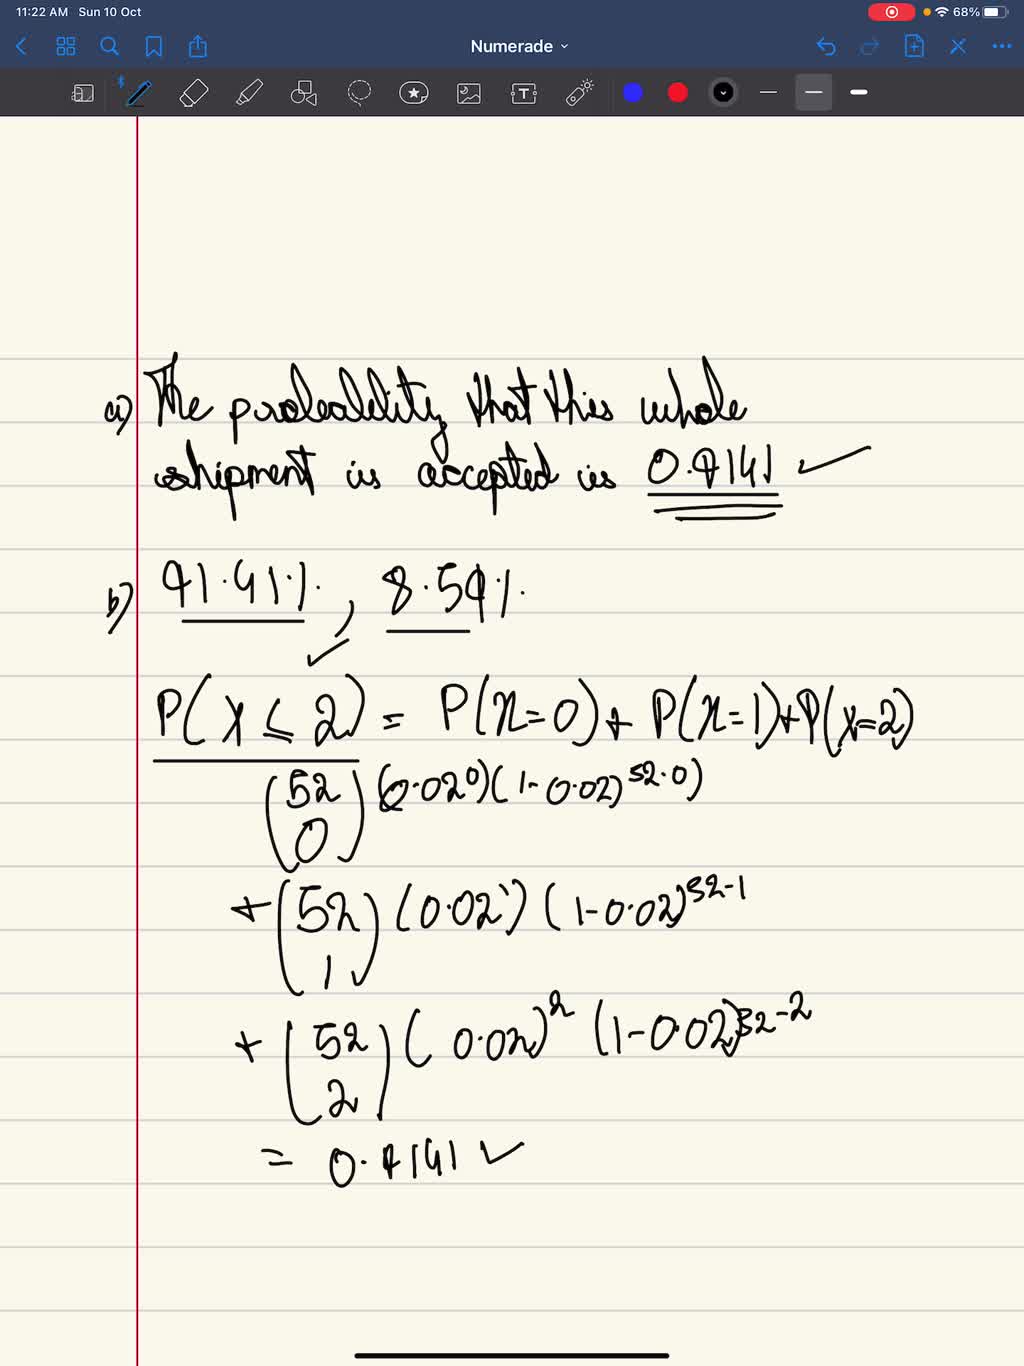 11:22 AM Sun 10 Oct 68%
Numerade
a) The probability that this whole
shipment is accepted is 0.9141 ✓
b) 91.41%, 8.59%
✓
P(X ≤ 2) = P(x=0) + P(x=1) + P(x=2)
(52 0) (0.02⁰) (1-0.02)⁵²⁻⁰)
+ (52 1) (0.02¹) (1-0.02)⁵²⁻¹
+ (52 2) (0.02)² (1-0.02)⁵²⁻²
= 0.9141 ✓